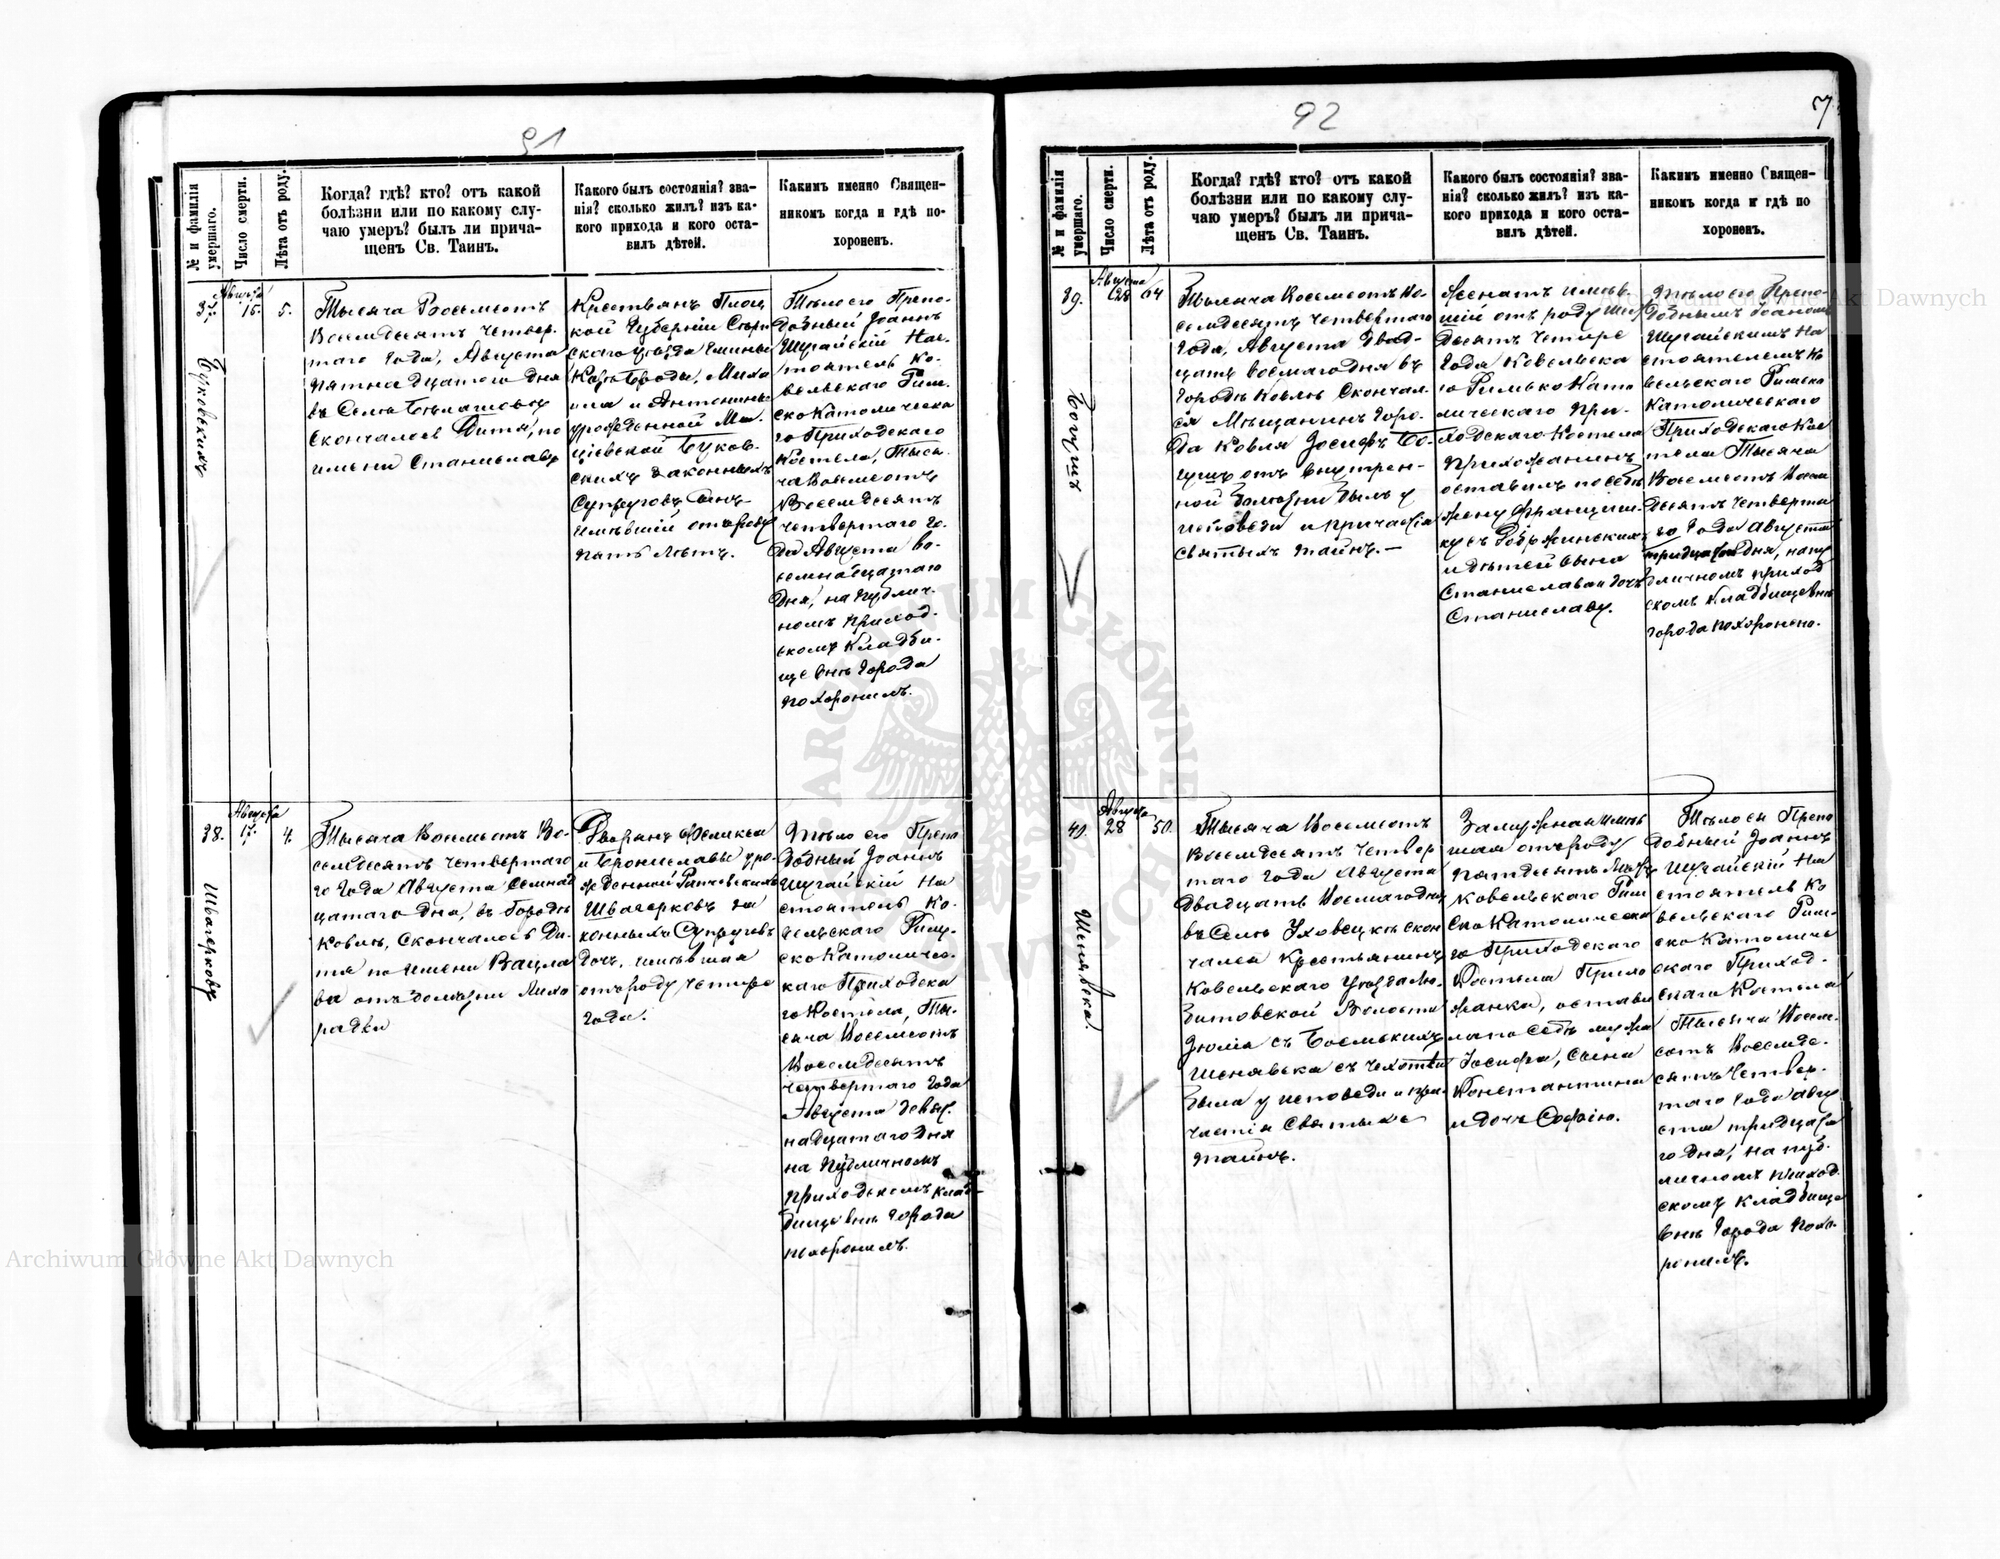 91
№ и фамилія умершаго.
Число смерти.
Лѣта отъ роду.
Когда? гдѣ? кто? отъ какой
болѣзни или по какому слу-
чаю умеръ? былъ ли прича-
щенъ Св. Таинъ.
Какого былъ состоянія? зва-
нія? сколько жилъ? изъ ка-
кого прихода и кого оста-
вилъ дѣтей.
Какимъ именно Священ-
никомъ когда и гдѣ по-
хороненъ.
37.
Августа
15.
5.
Тысяча Восемьсотъ
Восемдесятъ Четвер-
таго Года, Августа
пятнадцатого дня
въ Селѣ
скончалось Дитя, по
имени Станиславъ
Крестьянъ Плоц
кой Губерніи
скаго уѣзда Гмины
Миха
ила и Антонины
урожденной Ма-
ціевской Буков-
скихъ законныхъ
Супруговъ Сынъ
имѣвшій отъ роду
пять лѣтъ.
Тѣло его Препо-
добный Іоаннъ
Шугайскій Нас-
тоятель Ко-
вельскаго Рим-
ско Католическа
го Приходскаго
Костела, Тыся-
ча Восемсотъ
Восемдесятъ
четвертаго Го-
да Августа Во-
семнадцатаго
Дня, на публич-
номъ приход-
скомъ Кладби-
ще внѣ Города
похоронилъ.
38.
Августа
17.
4.
Тысяча Восемьсотъ Во-
семдесятъ четвертаго
го Года Августа Семнад
цатаго Дня, въ Городѣ
Ковлѣ, Скончалось Ди-
тя по имени Вацла
ва отъ болѣзни Лихо
радки
Дворянъ Феликса
и Брониславы уро-
жденной
Швагерковъ за
конныхъ Супруговъ
Дочь, имѣвшая
отъ роду четыре
года.
Тѣло его Препо
добный Іоаннъ
Шугайскій На
стоятель Ко-
вельскаго Рим-
ско Католичес-
каго Приходска
го Костела, Ты-
сяча Восемсотъ
Восемдесятъ
четвертаго Года
Августа девят-
надцатаго Дня
на Публичномъ
приходскомъ клад-
бище внѣ Города
похоронилъ.
92
7
№ и фамилія умершаго.
Число смерти.
Лѣта отъ роду.
Когда? гдѣ? кто? отъ какой
болѣзни или по какому слу-
чаю умеръ? былъ ли прича-
щенъ Св. Таинъ.
Какого былъ состоянія? зва-
нія? сколько жилъ? изъ ка-
кого прихода и кого оста-
вилъ дѣтей.
Какимъ именно Священ-
никомъ когда и гдѣ по
хороненъ.
39.
Августа
28
64
Богушъ
Тысяча Восемсотъ Во-
семдесятъ четвертаго
Года, Августа Двад-
цать восмаго дня въ
Городѣ Ковлѣ Скончал
ся Мѣщанинъ Горо-
да Ковля Іосифъ Бо-
гушъ отъ внутрен-
ной болѣзни былъ у
исповеди и причастія
святыхъ таинъ.—
Женатъ имѣв-
шій отъ роду шес
десятъ четыре
года Ковельска
го Римско Като
лическаго при-
ходскаго Костела
прихожанинъ
оставилъ по себѣ
жену Францишку
съ
и дѣтей сына
Станислава и дочь
Станиславу.
Тѣло его Препо-
добнымъ Іоанномъ
Шугайскимъ На
стоятелемъ Ко
вельскаго Римско
Католическаго
Приходскаго Кос
тела Тысяча
Восемсотъ Восем
десятъ четверта
го Года Августа
тридцатаго Дня, на пу
бличномъ приход
скомъ Кладбище внѣ
города похоронено.
40.
Августа
28
50.
Шенявска.
Тысяча Восемсотъ
Восемдесятъ Четвер
таго Года Августа
Двадцать Восмаго дня
въ Селѣ Уховецкѣ скон
чалась Крестьянинъ
Ковельскаго Уѣзда Лю-
битовской Волости
Юлія съ
Шенявска съ
была у исповеди и при-
частія Святыхъ
таинъ.
Замужная имѣв
шая отъ роду
пятдесятъ лѣтъ
Ковельскаго Рим
ско Католическа
го Приходскаго
Костела Прихо
жанка, остави
ла по себѣ мужа
Іосифа, Сына
Константина
и дочь Софію.
Тѣло ея Препо
добный Іоаннъ
Шугайскій На
стоятель Ко
вельскаго Рим-
ско Католиче
скаго Приход-
скаго Костела
Тысяча Восем-
сотъ Восемде-
сятъ Четвер-
таго Года Авгу
ста тридцата
го Дня, на пуб-
личномъ приход
скомъ Кладбище
внѣ Города похо-
ронилъ.
Archiwum Główne Akt Dawnych
Archiwum Główne Akt Dawnych
ARCHIWUM GŁÓWNE